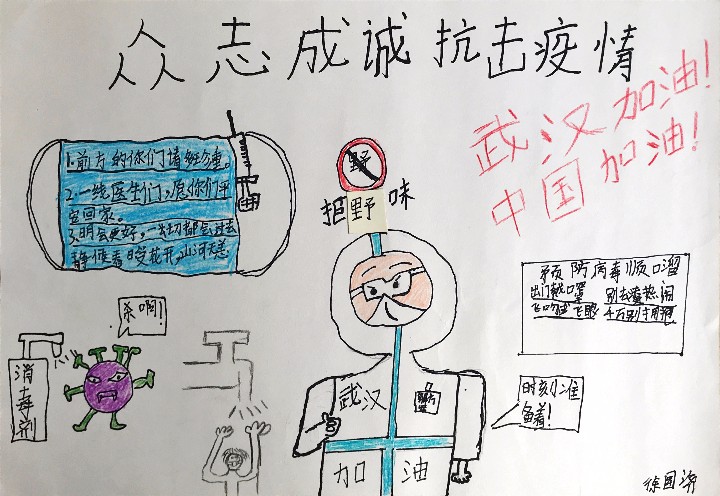 众志成诚抗击疫情
武汉加油！
中国加油！
1.前方的你们请多保重。
2.一线医生们，愿你们平
安回家。
3.明会更好，一切都会过去
静候春暖花开，山河无恙
野
拒野味
预防病毒顺口溜
出门戴口罩 别去凑热闹
杀啊！
消毒剂
武汉
加油
时刻准
备着！